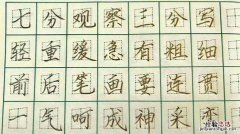 七分观察三分写
轻重缓急有粗细
前后笔画要连贯
一气呵成神采